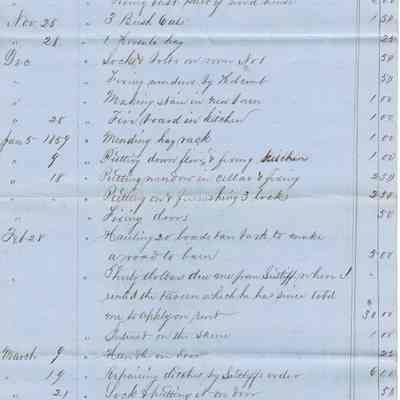 Nov. 25 " 3 Bush Oats 1 50
" 28 " 1 day 25
Dec " Lock & bolts on room No 1 50
" Fixing windows by 50
" Making stair in new barn 1 00
" 28 " Fire board in kitchen 1 00
Jan 5 1859 " Mending hay rack 1 00
" 9 " Putting down & fixing kitchen 1 00
" 18 " Putting window in cellar & fixing 2 50
" " Putting on & furnishing 3 locks 2 50
" Fixing doors 50
Feb 28 " Hauling 20 loads tan bark to make
a road to barn 5 00
" " Thirty dollars due me from Sutliff, when I
rented the tavern which he has since told
me to apply on rent 30 00
" Interest on the same 1 00
March 9 " on door 25
" 19 " Repairing ditches by Sutliffs order 6 00
" 21 " Lock & putting it on door 50